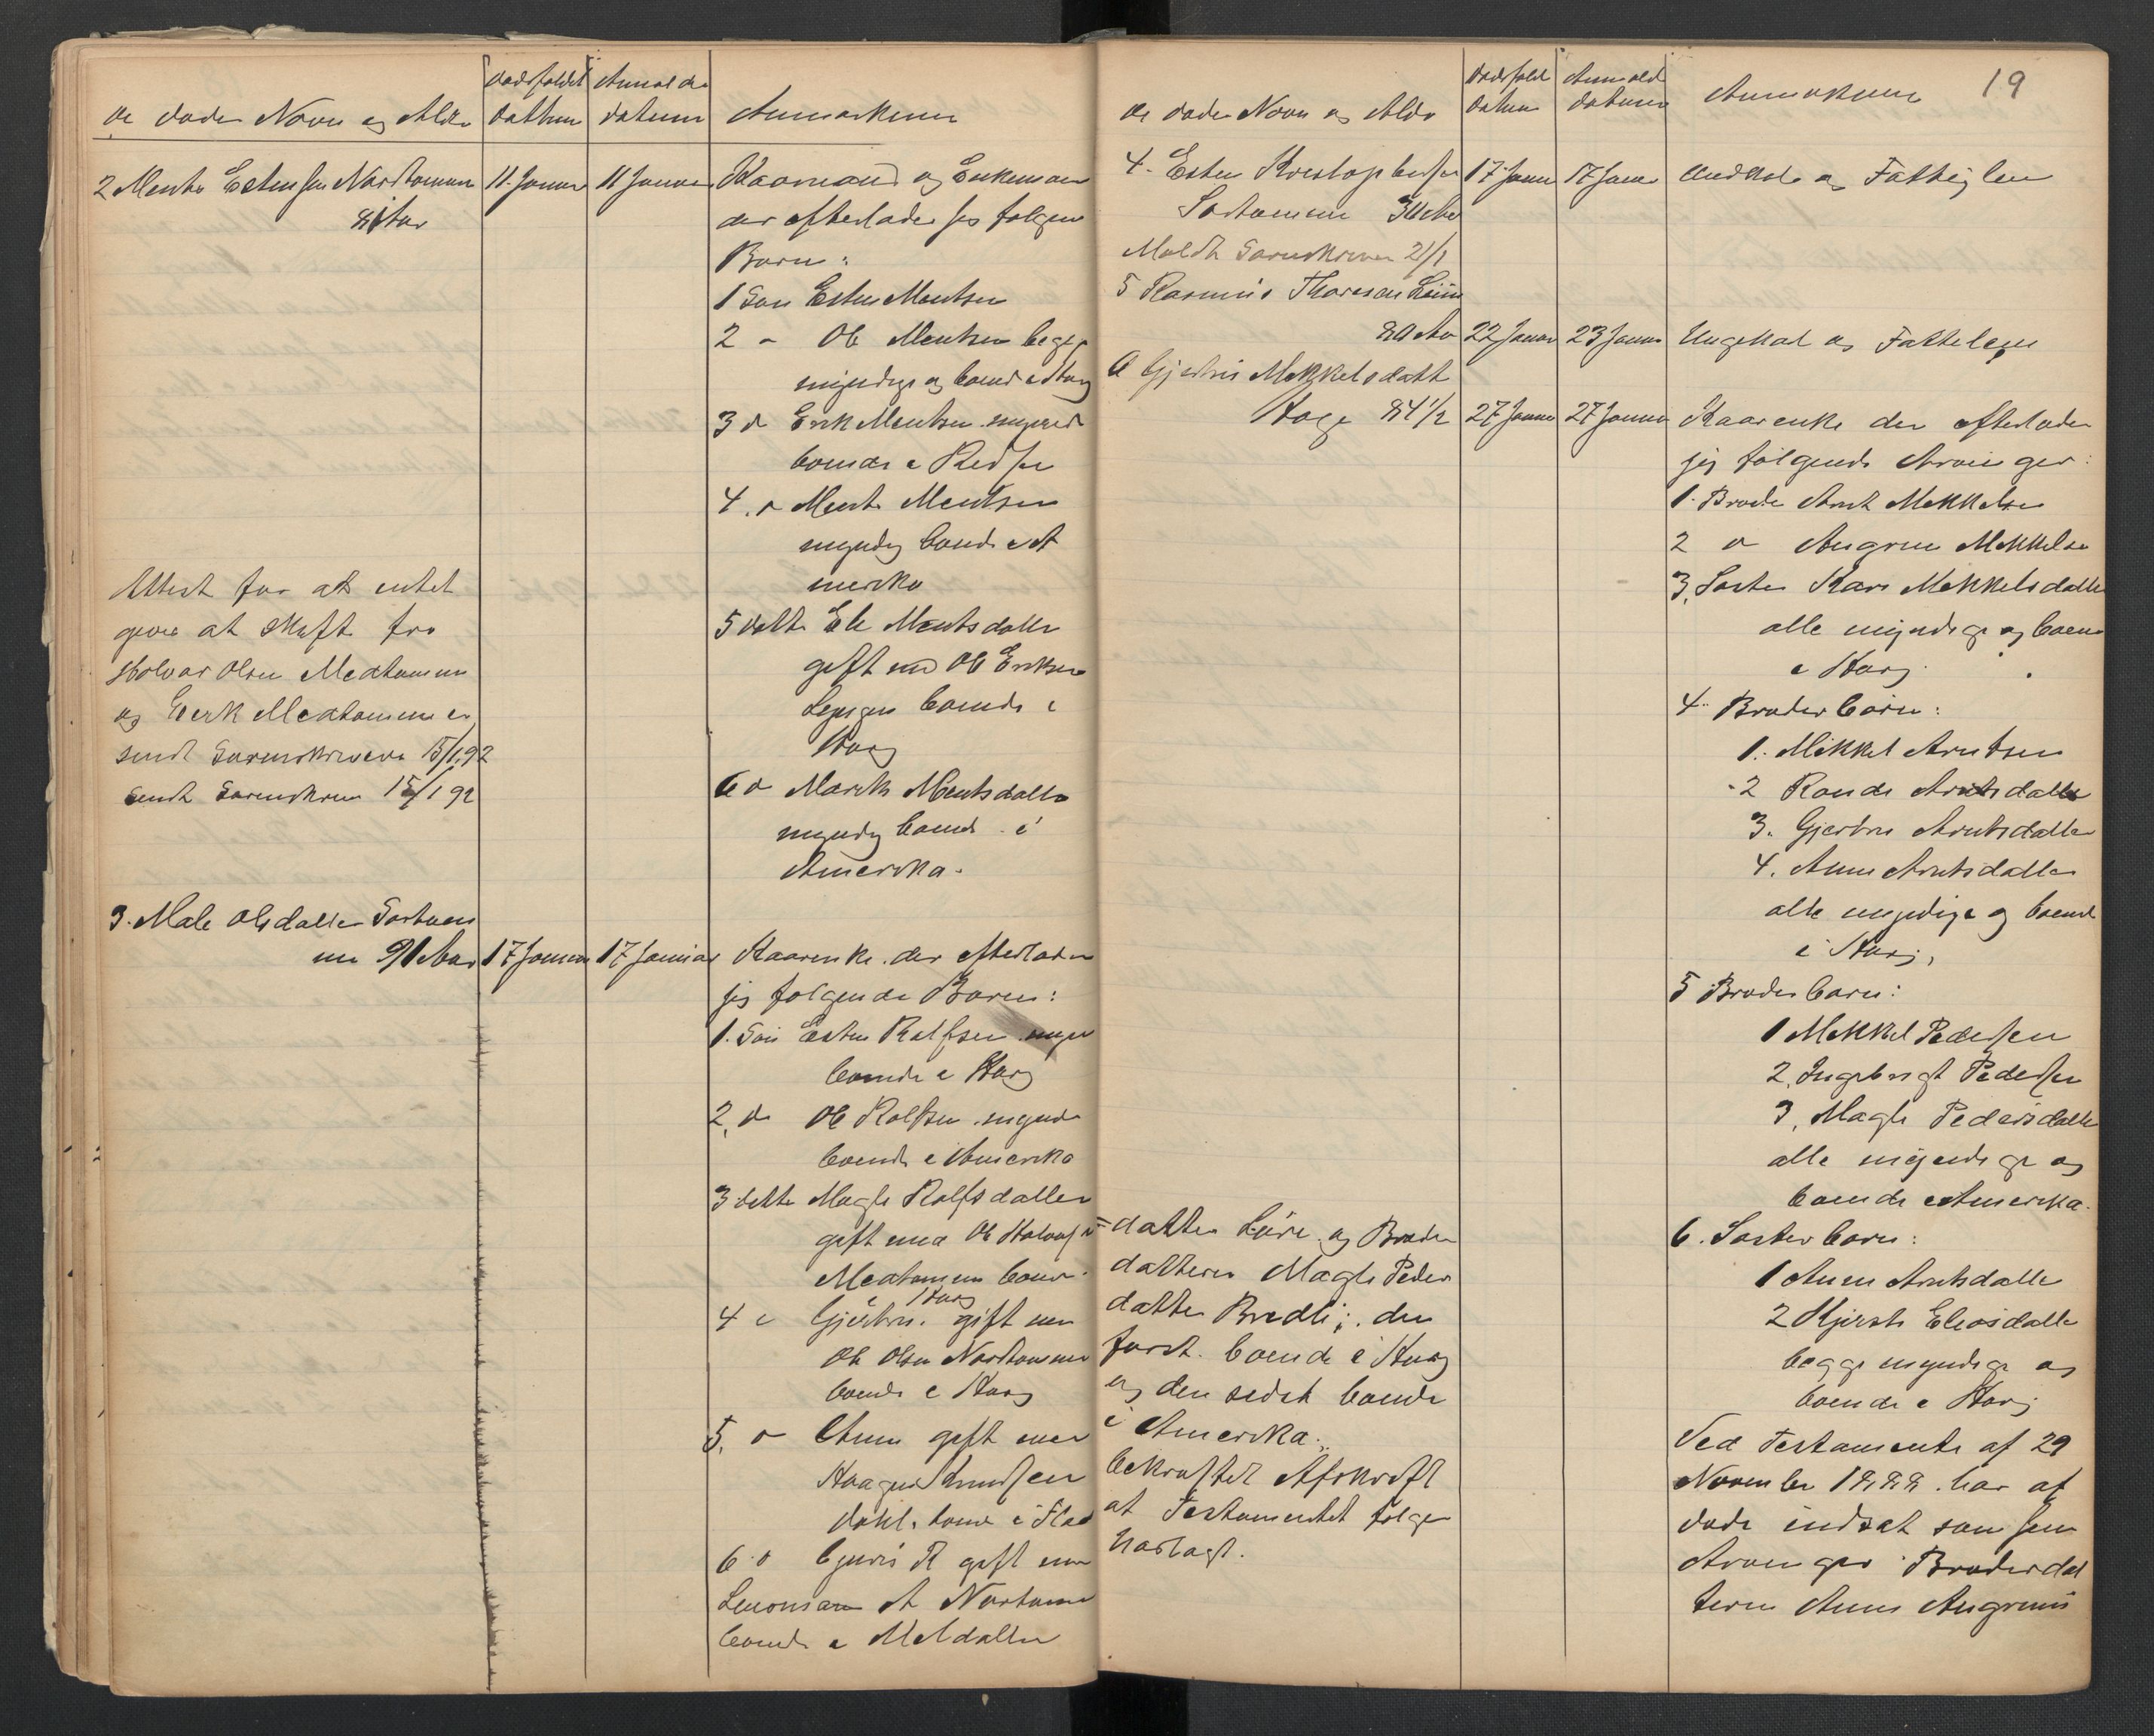 de døde Navn og Alder
dødsfaldet datum
Anmeldes datum
Anmerkning
2 Mente Estensen Nordtømme
81 Aar
11 Januar
11 Januar
Kaarmand og Enkeman
der efterlader sig følgen
Børn:
1 Søn Esten Mentsen
2 - Ole Mentsen begge
myndige og boende i Haug
3 d Erik Mentsen myndi
boende i
4. d Mente Mentsen
myndig boende i A
merika
5 datt Eli Mentsdatter
gift med Ole Eriksen
boende i
Haug
6 d Marit Mentsdatter
myndig boende i
Amerika.
Attest for at intet
give at skift fra
Halvor Olsen Medtømme
og Eerk Medtømme er
sendt Sorenskrivere 15/1.92
sendt Sorenskriver 15/1 92
3. Male Olsdatter Sørtøm
me 91 Aar
17 Januar
17 Januar
Kaarenke der efterlader
sig følgende Børn:
1. Søn Esten Rolfsen myn
boende i Haug
2. do Ole Rolfsen myndi
boende i Amerika
3 dotte Magli Rolfsdatter
gift med Ole Halvors
Medtømme boen
i Haug
4 d Gjertru. gift med
Ole Olsen Nordtømme
boende i Haug
5. d Anne gift med
Haagen Knudsen
Dahl. boend i Flad
6 d Guri R gift med
A Nortømme
boende i Meldalen
19
de døde Navn og Alder
dødsfald datum
Anmeld datum
Anmerkning
4. Esten Kristophersen
Sørtømme 30 Aar
17 Januar
17 Januar
Undkele og Fattiglem
Meldt Sorenskriver 21/1
5 Rasmus Thoresen
80 Aar
22 Januar
23 Januar
Ungekal og Fattelem
6 Gjertru Mekkelsdatt
Hage 84 1/2
27 Januar
27 Januar
Kaarenke der efterlader
sig følgende Arvinger:
1. Broder Arnt Mekkelsen
2 d Angrim Mekkelsen
3. Søster Kari Mekkelsdatter
alle myndige og boen
i Haug.
4. Broderbørn:
1. Mikkel Arntsen
2 Rande Arntsdatter
3. Gjertru Arntsdatter
4. Anne Arntsdatter
alle myndige og boend
i Haug,
5 Broderbørn:
1 Mekkel Pedersen
2. Ingebrigt Pedersen
3. Magli Pedersdatter
alle myndige og
boende i Amerika.
6. Søsterbørn:
1 Anne Arntsdatter
2 Kjersti Eliasdatter
begge myndige og
boende i Haug
Ved Testamente af 29
November 1888 har af
døde indsat som sin
Arvinger Broderdat
teren Anne Angrims
= datter Løre og Broder
datteren Magli Peders
datter Bredli; den
først. boende i Haug
og den sidst boende
i Amerika.
bekræftet Afskrift
at Testamentet følger
Hoslagt.